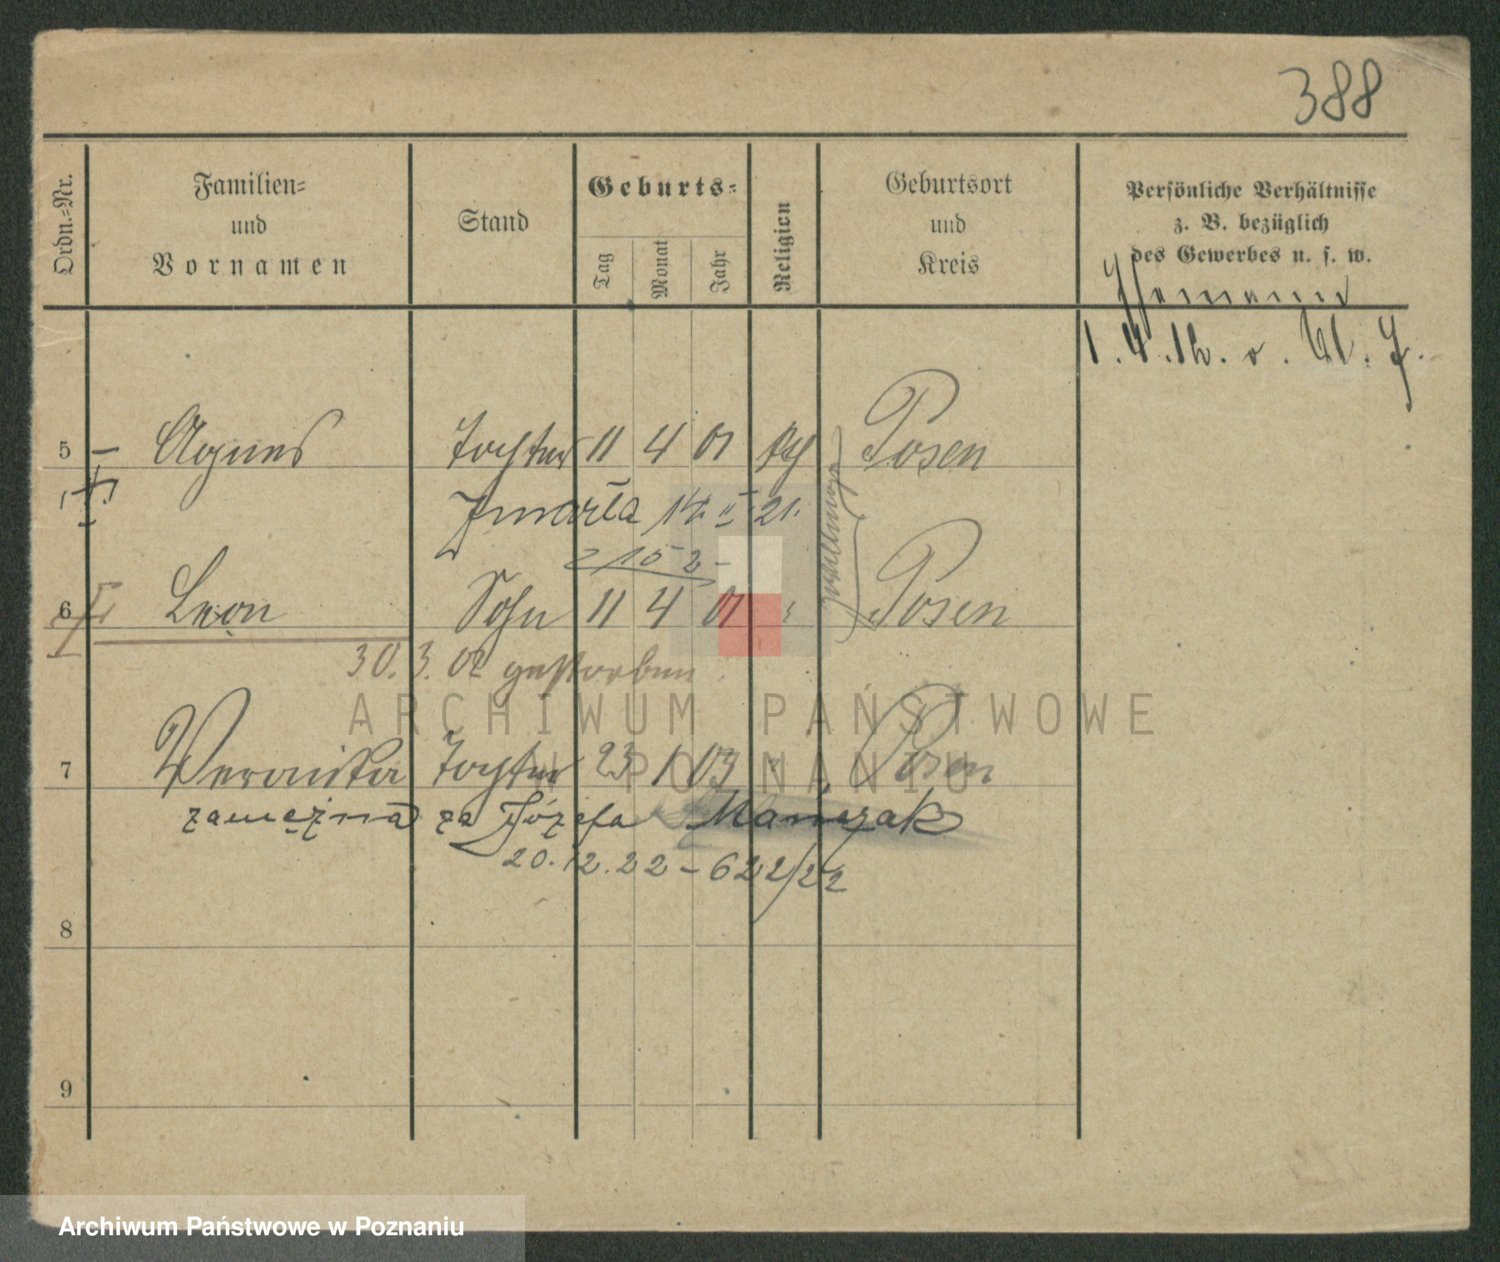 388
Ordn.-Nr.
Familien-
und
Vornamen
Stand
Geburts-
Tag
Monat
Jahr
Religion
Geburtsort
und
Kreis
Persönliche Verhältnisse
z. B. bezüglich
des Gewerbes u. s. w.
1. 4. 12. v.
5 Agnes Tochter 11 4 01 Posen
Zmarła 14. II. 21.
152
Zwillinge
6 Leon Sohn 11 4 01 Posen
30. 3. 02 gestorben.
7 Veronika Tochter 23 1 03 Posen
zamężna za Józefa Mańczak
20.12.22 – 622/22
8
9
ARCHIWUM PAŃSTWOWE
W POZNANIU
Archiwum Państwowe w Poznaniu